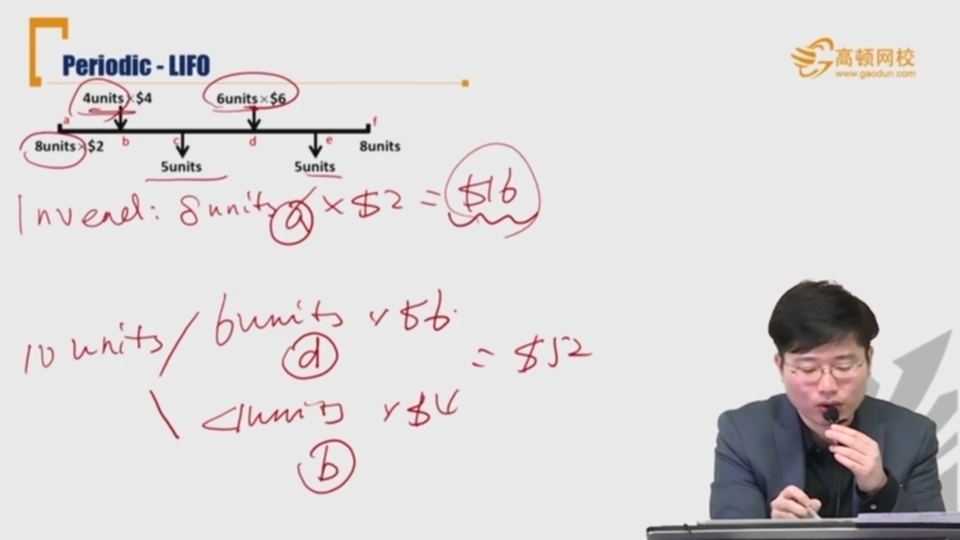 Periodic - LIFO
高顿网校
www.gaodun.com
4units×$4
6units×$6
a
f
8units×$2
b
c
d
e
8units
5units
5units
Invend: 8units a × $2 = $16
10 units / 6units × $6
d
= $52
\ 4units × $4
b